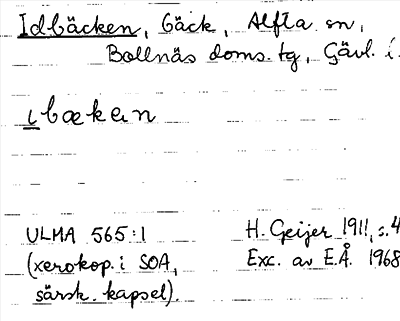 Idbäcken, bäck, Alfta sn,
Bollnäs doms. tg, Gävl. l.
ibækən
ULMA 565:1
(xerokop. i SOA,
särsk. kapsel).
H. Geijer 1911, s. 4
Exc. av E.Å. 1968